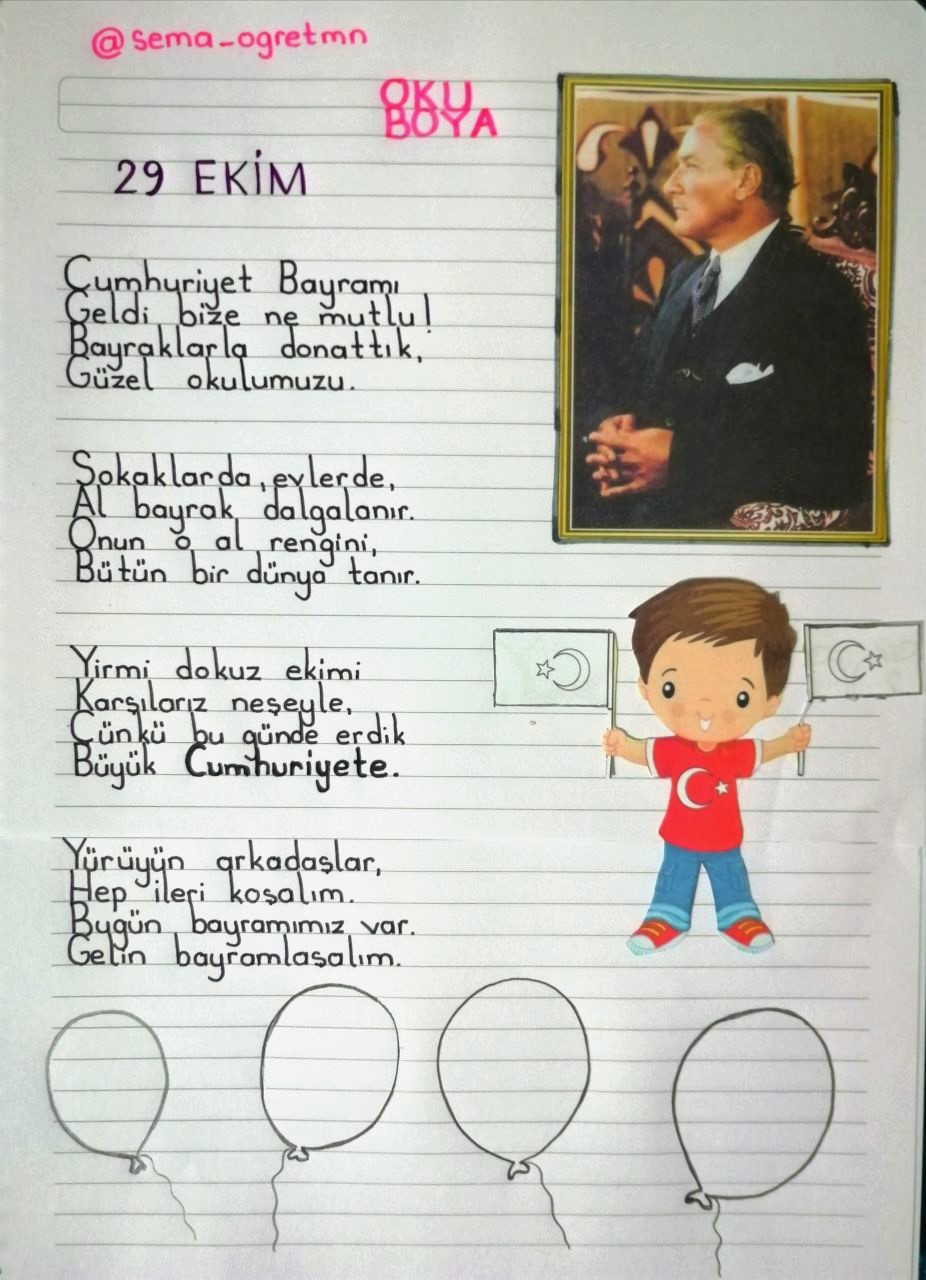 @sema_ogretmn
OKU
BOYA
29 EKİM
Cumhuriyet Bayramı
Geldi bize ne mutlu!
Bayraklarla donattık,
Güzel okulumuzu.
Sokaklarda, evlerde,
Al bayrak dalgalanır.
Onun o al rengini,
Bütün bir dünya tanır.
Yirmi dokuz ekimi
Karşılarız neşeyle,
Çünkü bu günde erdik
Büyük Cumhuriyete.
Yürüyün arkadaşlar,
Hep ileri koşalım.
Bugün bayramımız var.
Gelin bayramlaşalım.